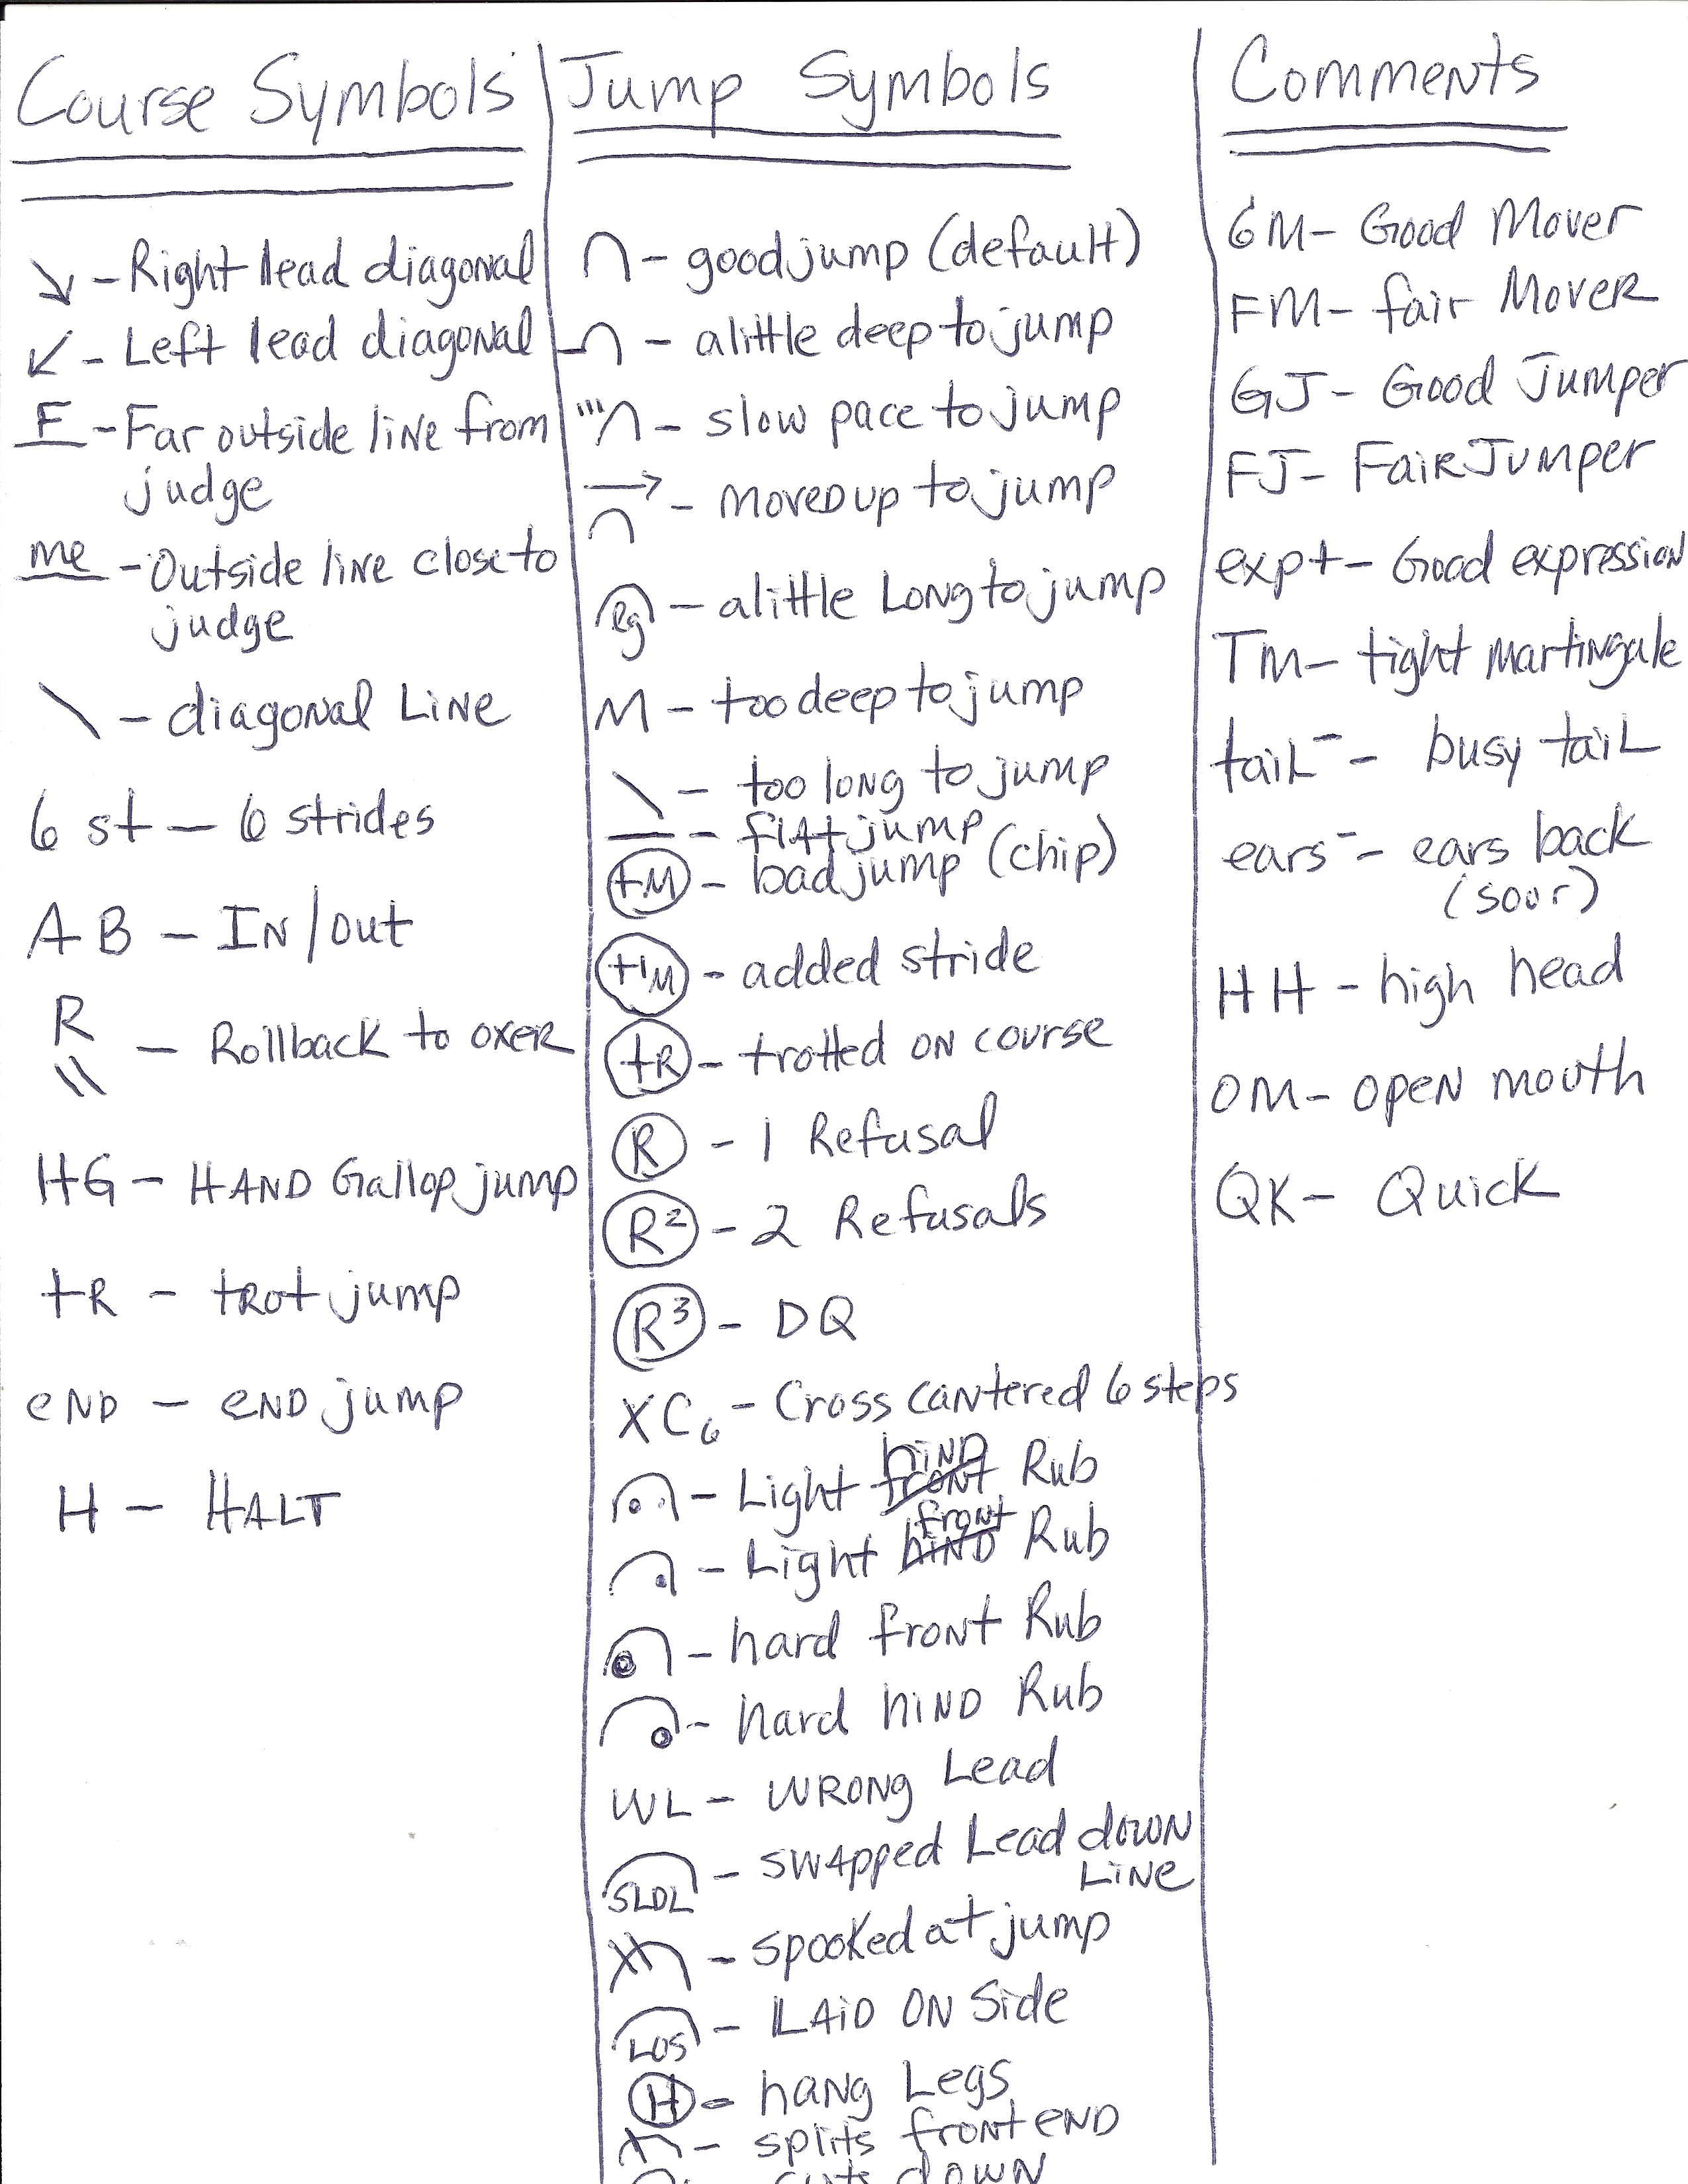 Course Symbols
↘ - Right lead diagonal
↙ - Left lead diagonal
F - Far outside line from
judge
me - Outside line close to
judge
\ - diagonal Line
6 st - 6 strides
A B - IN/out
R
\\ - Rollback to oxer
HG - HAND Gallop jump
tR - tRot jump
eND - eND jump
H - HALT
Jump Symbols
∩ - good jump (default)
_∩ - alittle deep to jump
'''∩ - slow pace to jump
→
∩ - moved up to jump
lg - alittle Long to jump
M - too deep to jump
\ - too long to jump
— - flAt jump
+M - bad jump (chip)
+1M - added stride
tR - trotted on course
R - 1 Refusal
R² - 2 Refusals
R³ - DQ
XC6 - Cross cantered 6 steps
hiND
- Light front Rub
front
- Light hiND Rub
- hard front Rub
- hard hiND Rub
WL - WRONG Lead
SLDL - swapped Lead down
Line
- spooked at jump
LOS - LAiD ON Side
H - hang Legs
- splits front eND
- cuts down
Comments
GM - Good Mover
FM - fair Mover
GJ - Good Jumper
FJ - Fair Jumper
exp+ - Good expression
TM - tight martingale
taiL⁻ - busy taiL
ears⁻ - ears back
(sour)
HH - high head
OM - open mouth
QK - Quick